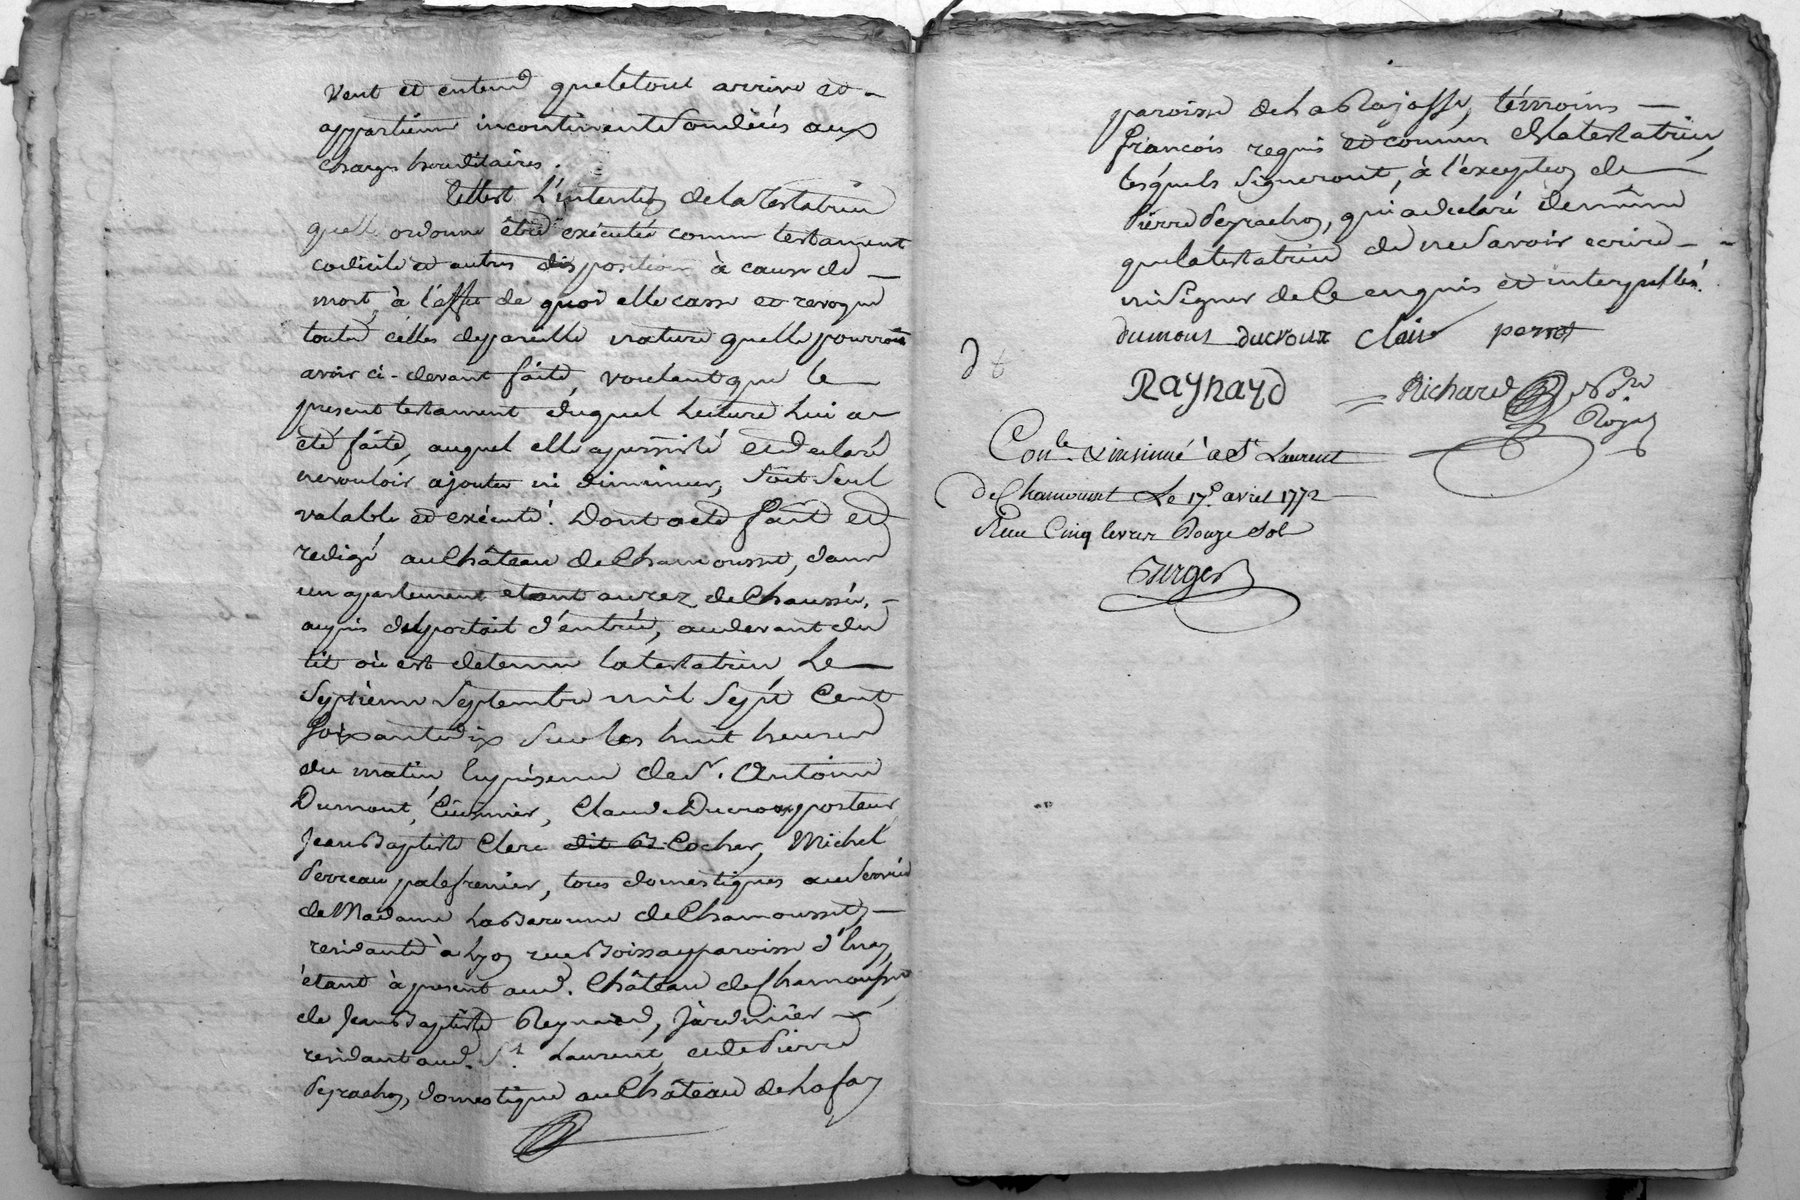 veut et entend que le tout arrive et
appartienne incontinent son décès aux
charges hereditaires.
Telle est l'intention de la testatrice
quelle ordonne être exécutée comme testament
codicile et autres dispositions à cause de
mort, à l'effet de quoi elle casse et revoque
toutes celles de pareille nature quelle pourroit
avoir ci-devant faite, voulant que le
present testament duquel lecture lui a
été faite, auquel elle a persisté et declaré
ne vouloir ajouter ni diminuer, soit seul
valable et exécuté. Dont acte fait et
redigé au Château de Chamousset, dans
un apartement etant au rez de chaussée,
auprès du portait d'entrée, au devant du
lit où est detenue la testatrice le
septieme septembre mil sept cent
soixante dix sur les huit heures
du matin en présence de Sr. Antoine
Dumont, Cuisinier, Claude Ducroux porteur,
Jean Baptiste Clerc dit B Cocher, Michel
Perreau palefrenier, tous domestiques au service
de Madame La Baronne de Chamousset,
residante à Lyon rue Boissay paroisse d'Enay,
étant à present aud. Château de Chamousset
de Jean Baptiste Reynaud, Jardinier
residant aud. St. Laurent, et de Pierre
Peyrachon, domestique au Château de Lafay
paroisse de La Rajasse, témoins
francois requis et connus de la testatrice,
lesquels signeront, à l'exception de
Pierre Peyrachon, qui a declaré de même
que la testatrice de ne savoir ecrire
ni signer de ce enquis et interpellés.
dumont ducroux Clair perrot
Raynayd Richard Nre
Royal
Conle. & insinué à St Laurent
de Chamousset Le 17e. avril 1772
Reçu Cinq livres Douze sols
Burger